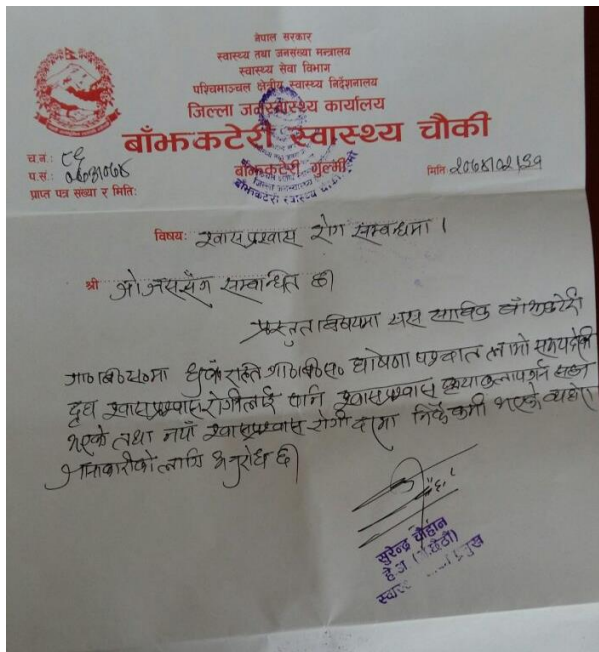 नेपाल सरकार
स्वास्थ्य तथा जनसंख्या मन्त्रालय
स्वास्थ्य सेवा विभाग
पश्चिमाञ्चल क्षेत्रीय स्वास्थ्य निर्देशनालय
जिल्ला जनस्वास्थ्य कार्यालय
बाँझकटेरी स्वास्थ्य चौकी
बाँझकटेरी गुल्मी
च.नं.: ८६
प.सं.: ०७३।०७४
मिति: २०७४।०२।३१
प्राप्त पत्र संख्या र मिति:
विषय: श्वासप्रश्वास रोग सम्बन्धमा ।
श्री ओ जससँग सम्बन्धित छ।
प्रस्तुत विषयमा यस साविक बाँझकटेरी
गा॰वि॰स॰मा धुवाँ रहित गा॰वि॰स॰ घोषणा पश्चात लामो समयदेखी
श्वासप्रश्वास रोगीलाई पनि श्वासप्रश्वास
भएको तथा नयाँ श्वासप्रश्वास रोगी दरमा निकै कमी भएको व्यहोरा
जानकारीको लागि अनुरोध छ।
सुरेन्द्र चौहान
हे अ